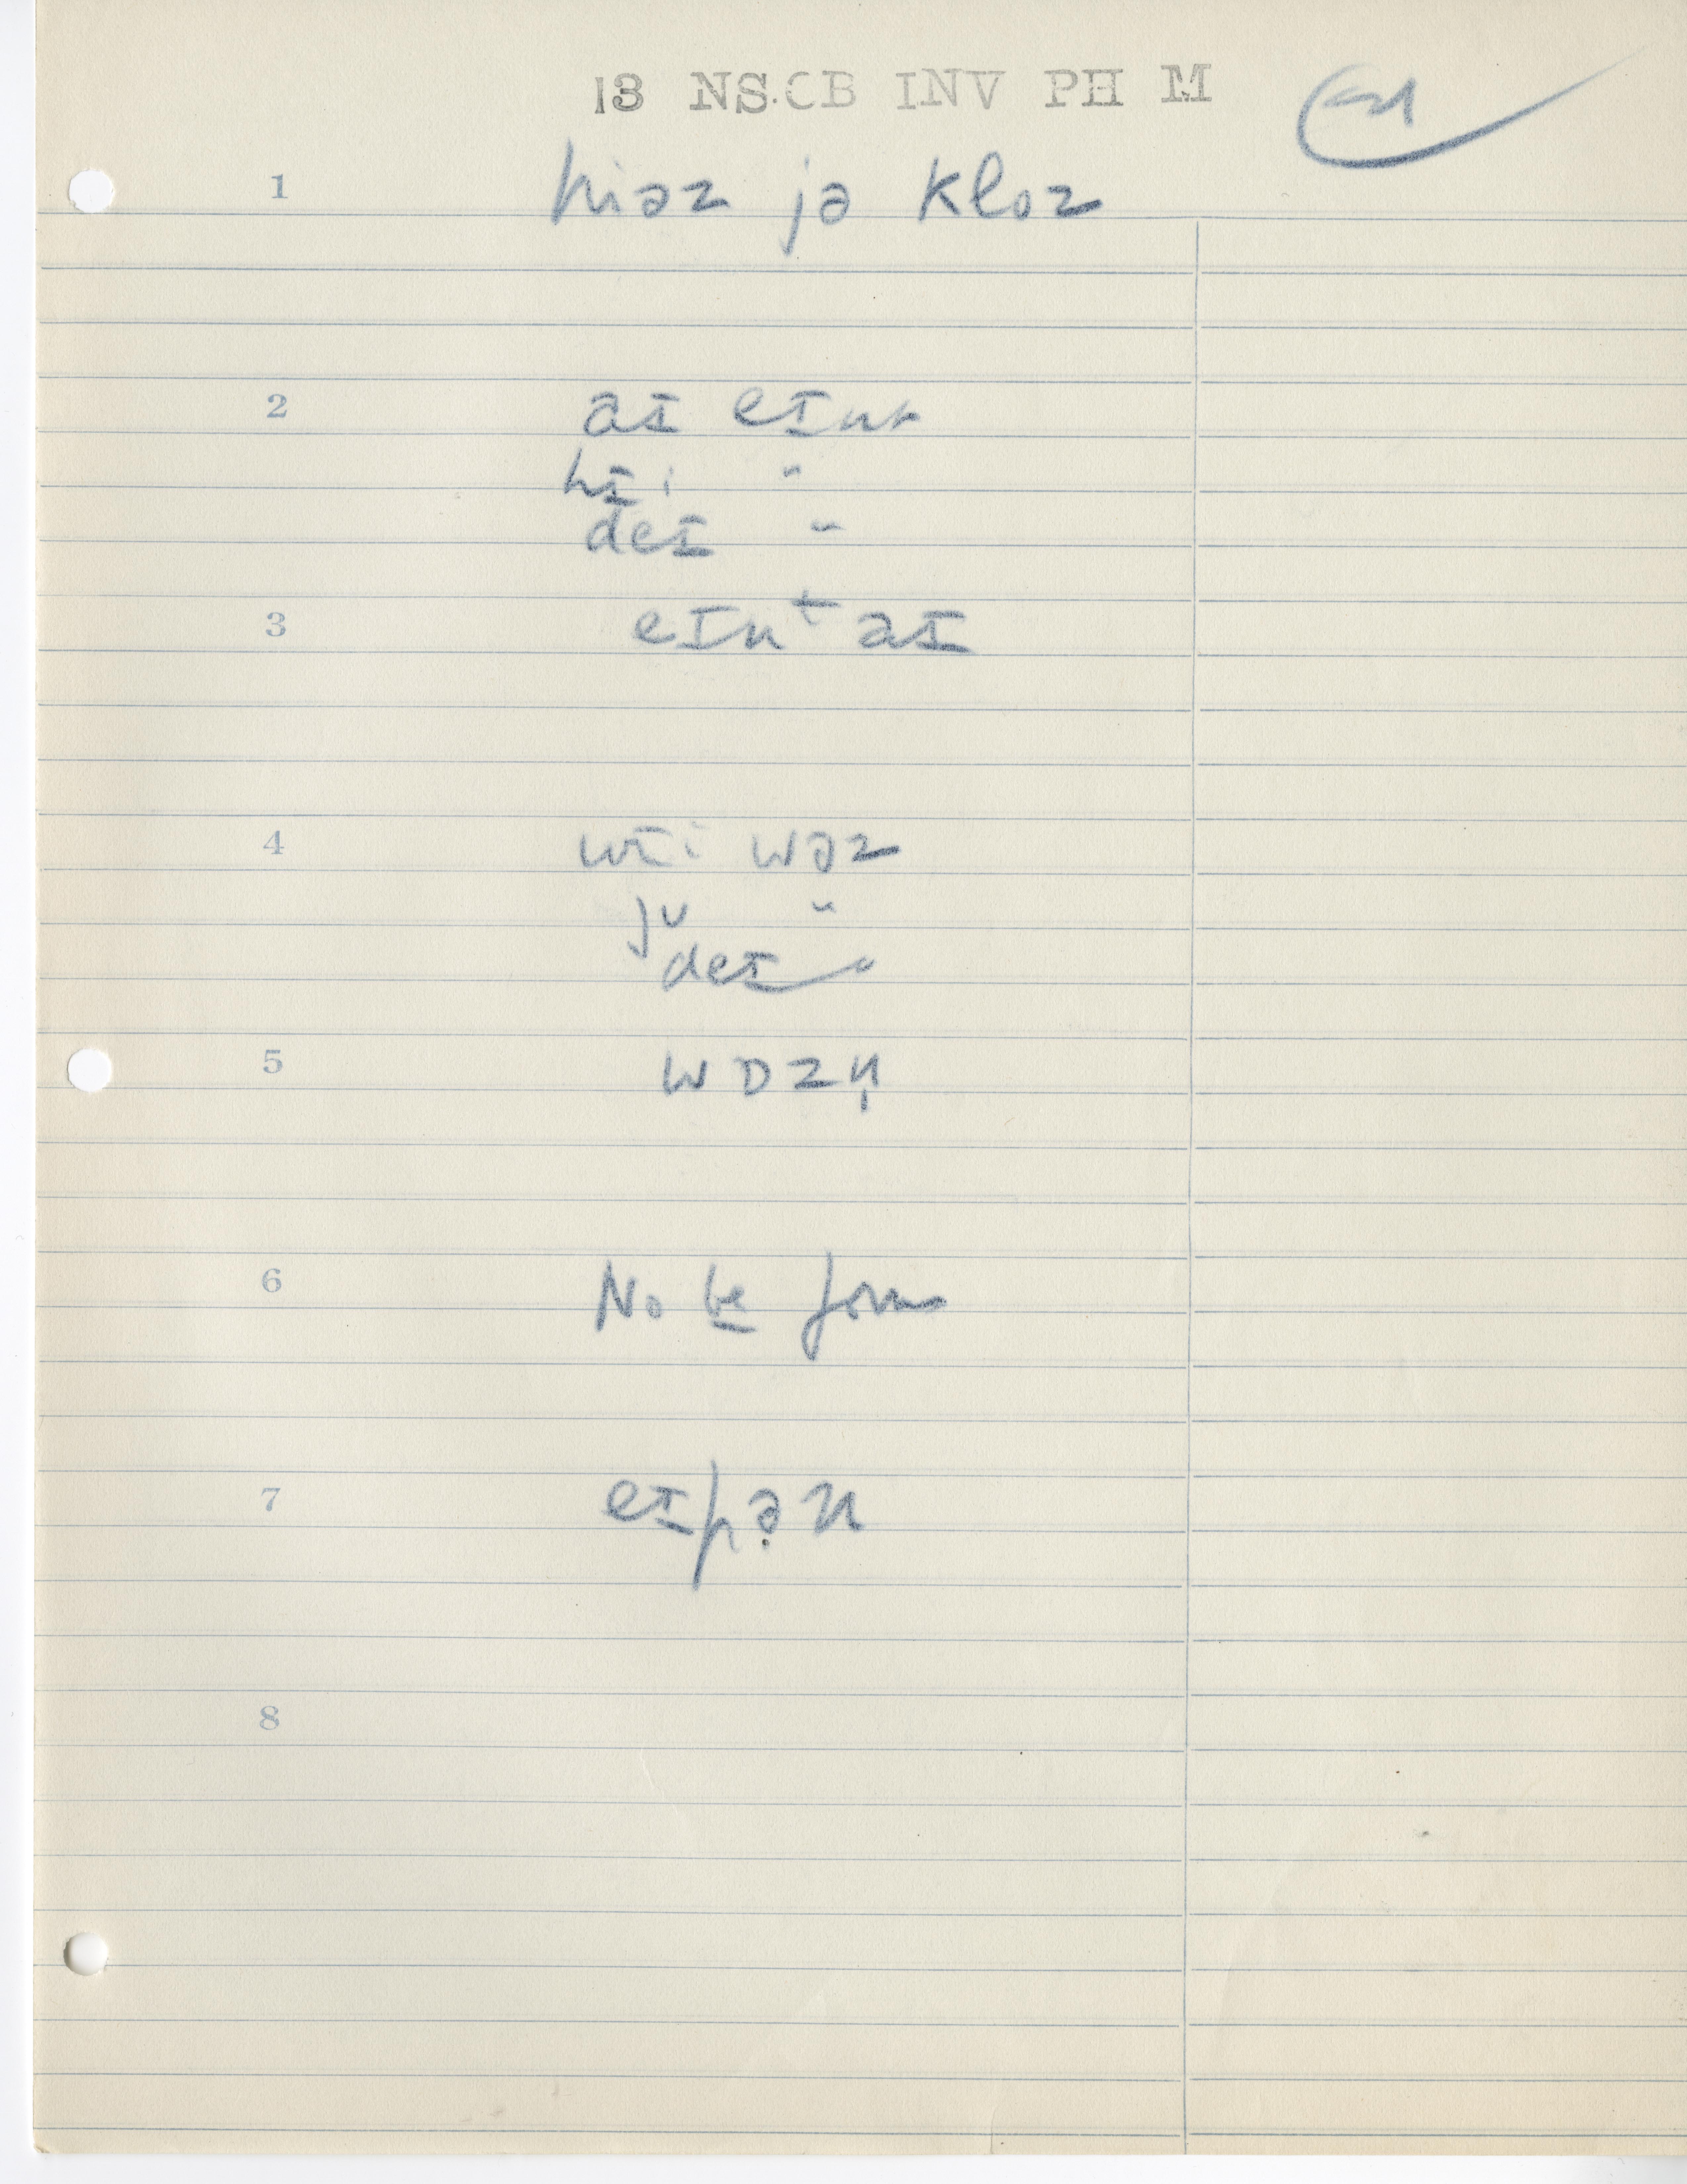 13 NS.CB INV PH M
1 hiəz jə kloz
2 aɪ eɪnt
hɪi "
deɪ "
3 eɪnt aɪ
4 wɪi wəz
jʊ "
deɪ "
5 wɒzn̩
6 No be form
7 eɪpə̣n
8